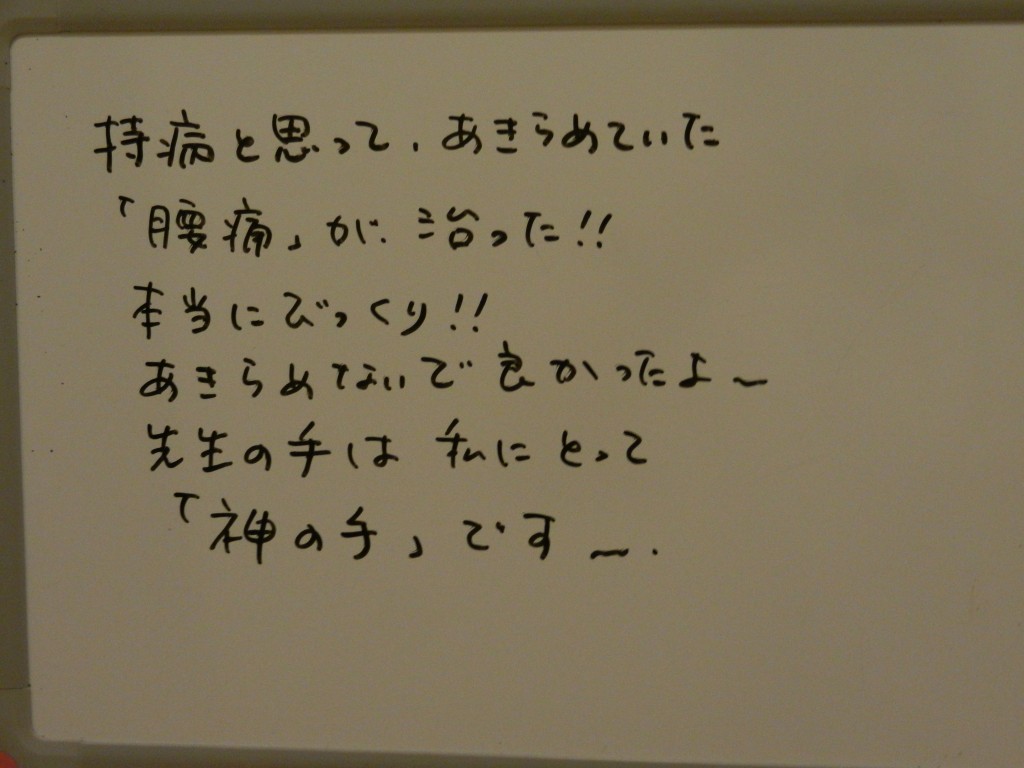 持病と思って、あきらめていた
「腰痛」が治った!!
本当にびっくり!!
あきらめないで良かったよ～
先生の手は私にとって
「神の手」です～.